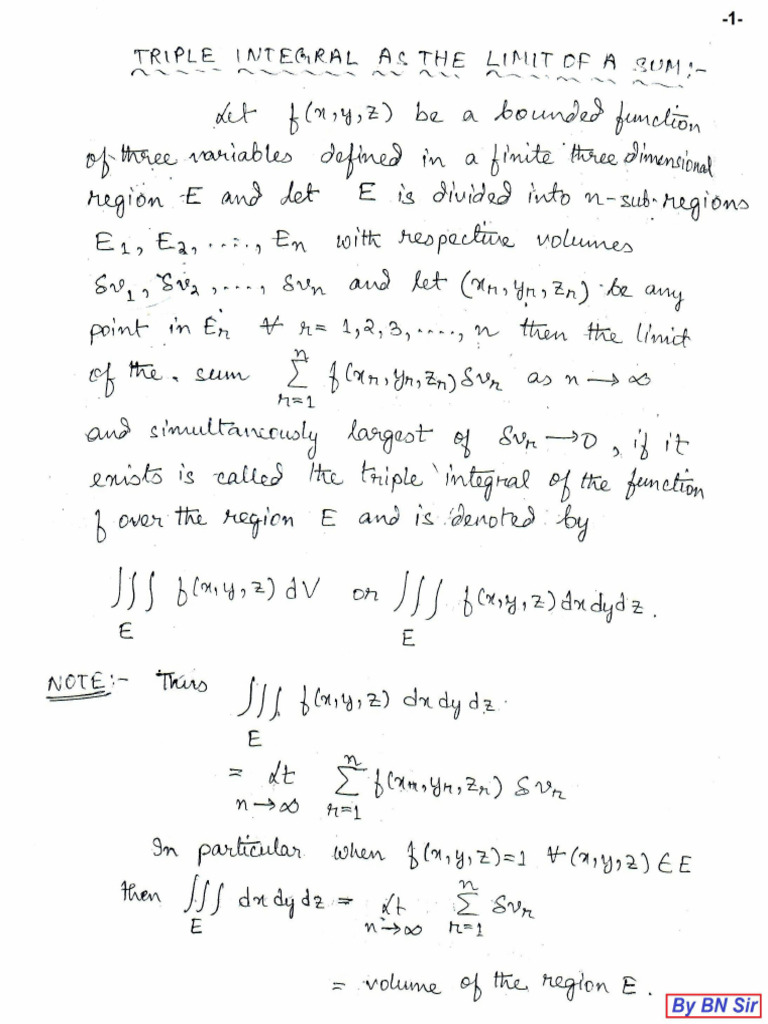 -1-
TRIPLE INTEGRAL AS THE LIMIT OF A SUM:-
Let f(x,y,z) be a bounded function
of three variables defined in a finite three dimensional
region E and let E is divided into n-sub-regions
E₁, E₂, ...., Eₙ with respective volumes
δv₁, δv₂, ...., δvₙ and let (xᵣ, yᵣ, zᵣ) be any
point in Eᵣ ∀ r = 1,2,3, ...., n then the limit
of the sum ∑_{r=1}^{n} f(xᵣ, yᵣ, zᵣ) δvᵣ as n → ∞
and simultaneously largest of δvᵣ → 0, if it
exists is called the triple integral of the function
f over the region E and is denoted by
∭_E f(x,y,z) dV or ∭_E f(x,y,z) dx dy dz.
NOTE:- Thus ∭_E f(x,y,z) dx dy dz.
= Lt_{n→∞} ∑_{r=1}^{n} f(xᵣ, yᵣ, zᵣ) δvᵣ
In particular when f(x,y,z)=1 ∀ (x,y,z) ∈ E
then ∭_E dx dy dz = Lt_{n→∞} ∑_{r=1}^{n} δvᵣ
= volume of the region E.
By BN Sir